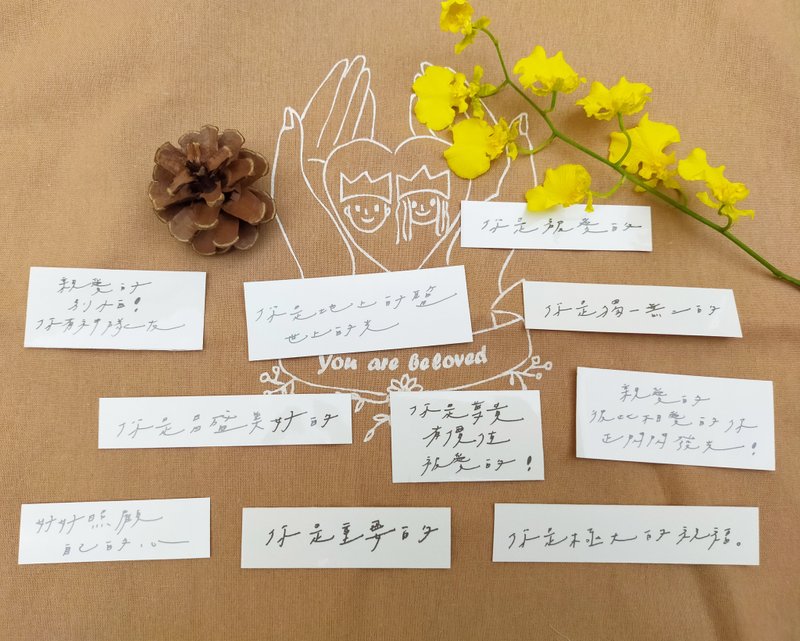 你是被愛的
親愛的
別怕!
你有神隊友
你是地上的鹽
世上的光
你是獨一無二的
You are beloved
你是豐盛美好的
你是尊貴
有價值
被愛的!
親愛的
彼此相愛的你
正閃閃發光!
好好照顧
自己的心
你是重要的
你是極大的祝福。